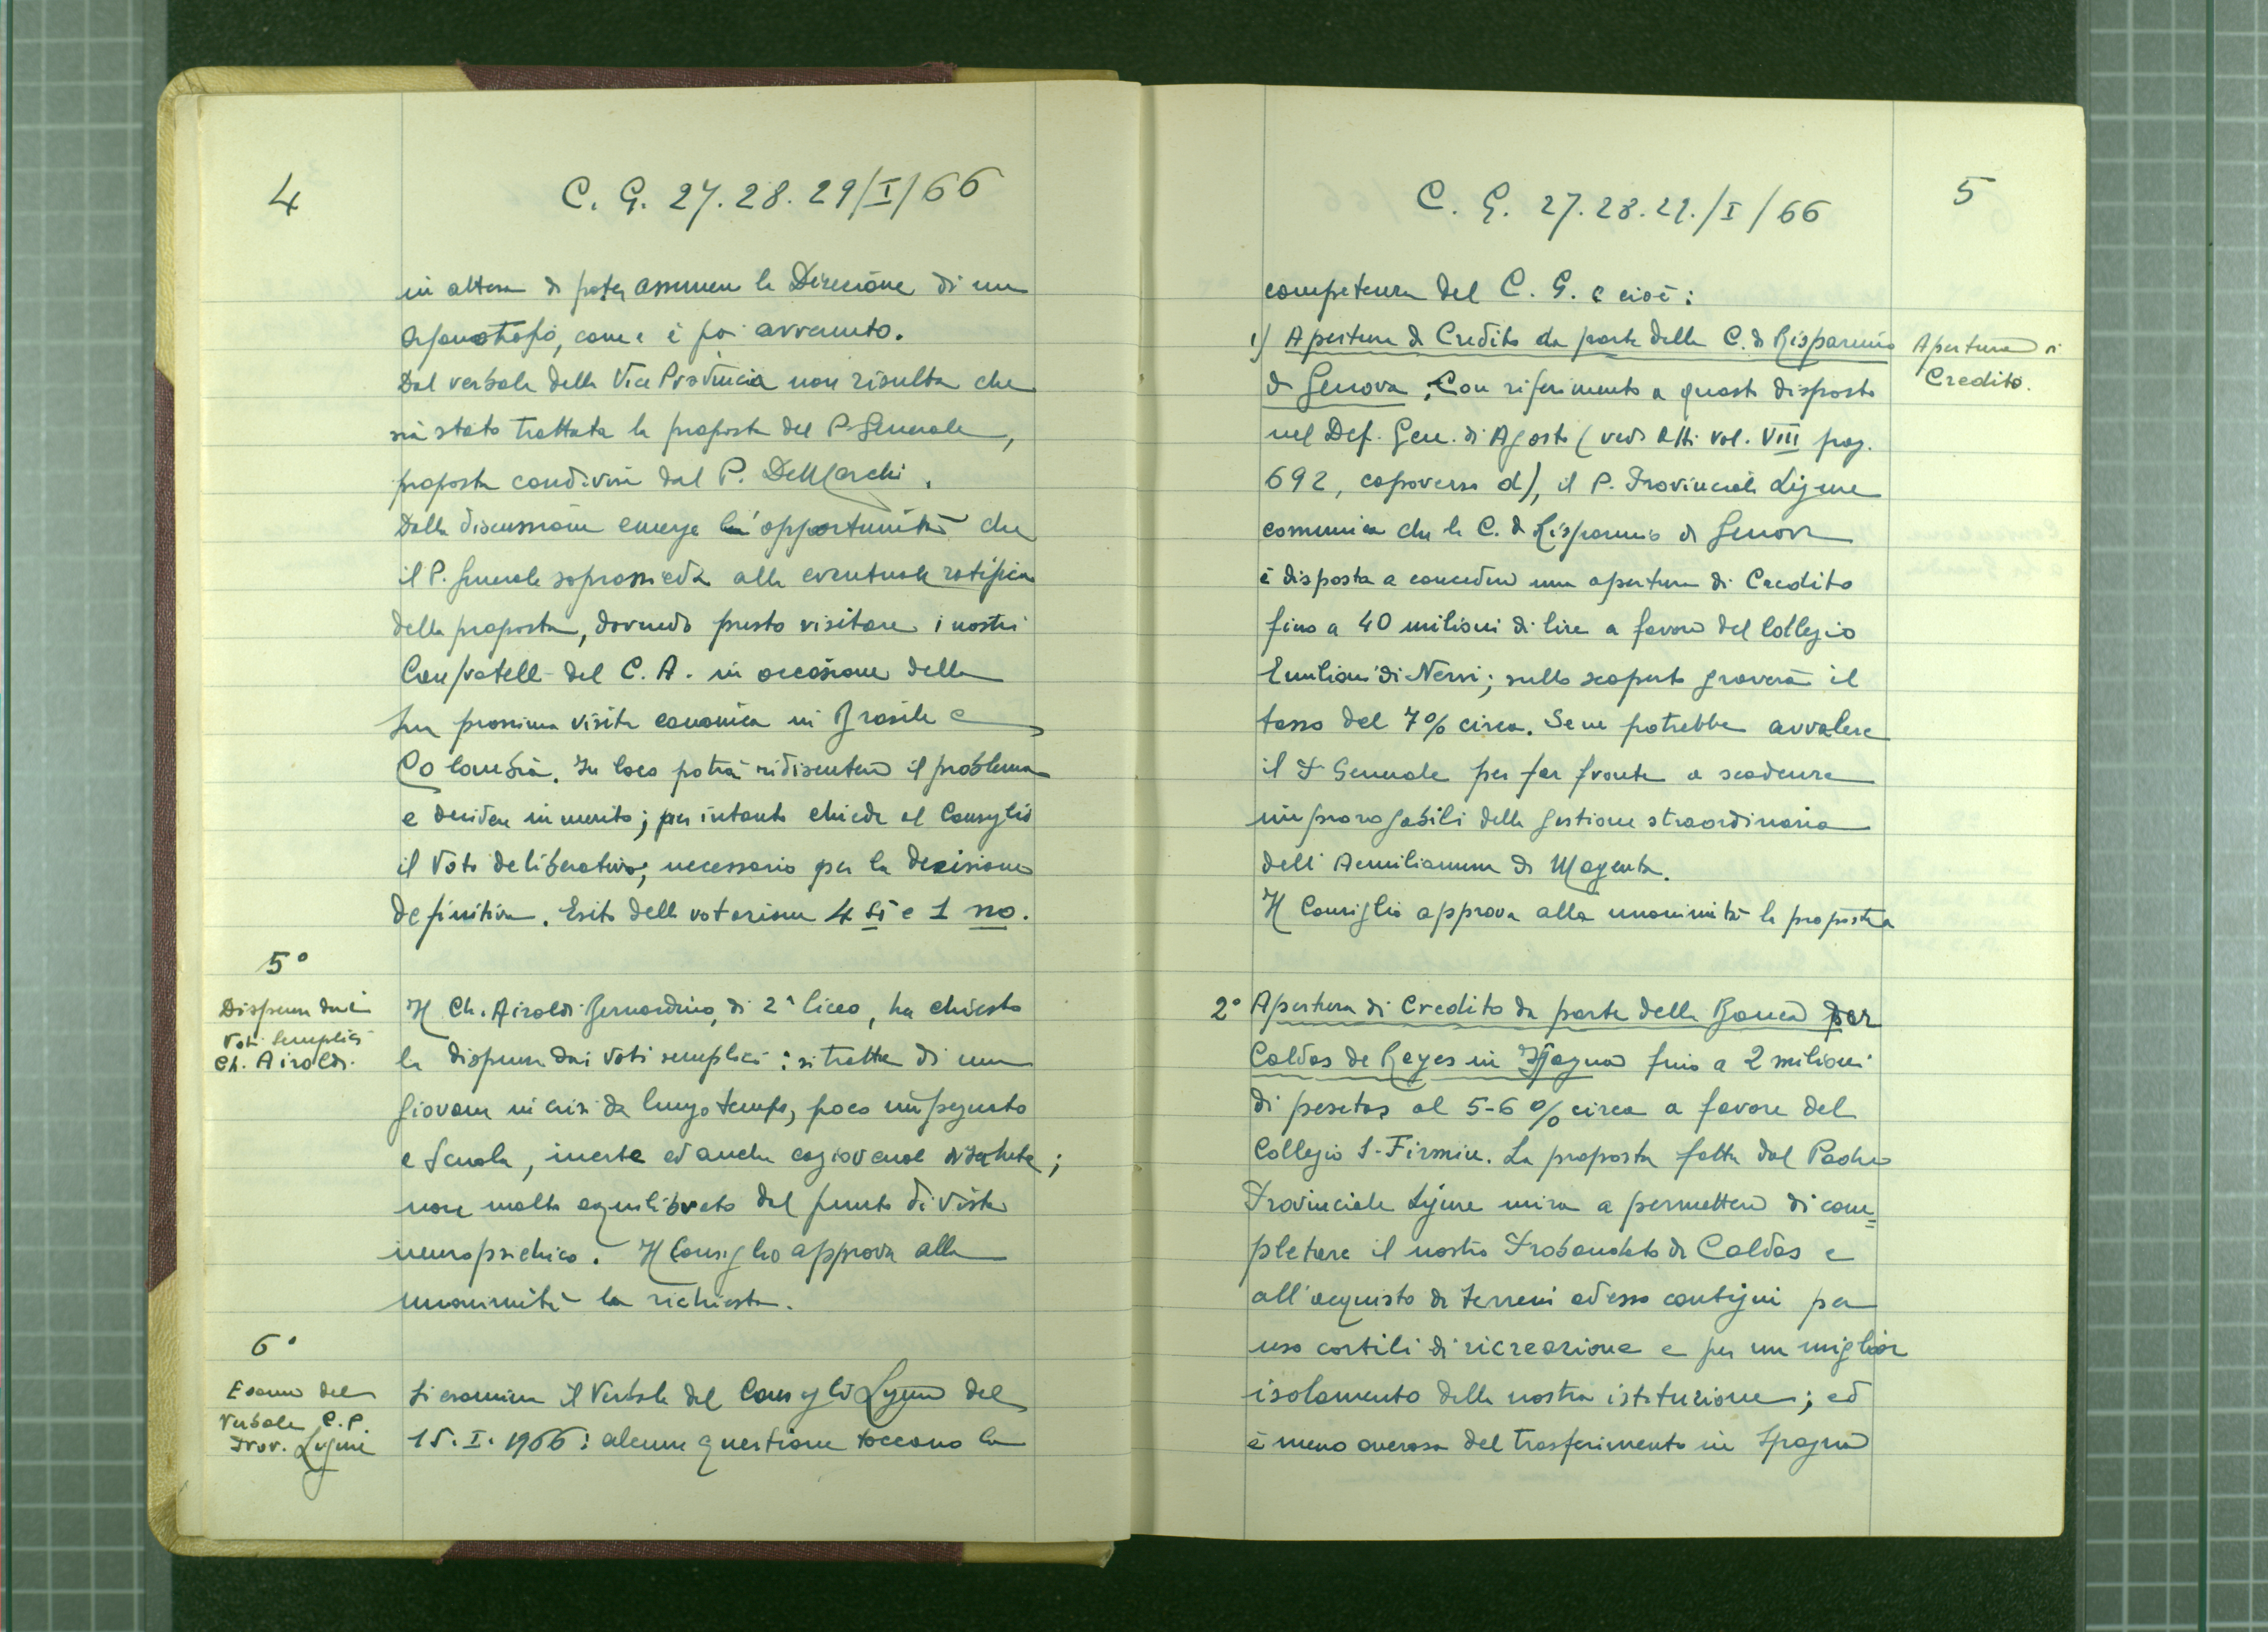 4
C. G. 27. 28. 29/I/66
in attesa di poter assumere la Direzione di un
orfanotrofio, come è poi avvenuto.
Dal verbale della Vice Provincia non risulta che
sia stata trattata la proposta del P. Generale,
proposta condivisa dal P. DeMarchi.
Dalla discussione emerge l'opportunità che
il P. Generale soprassieda alla eventuale ratifica
della proposta, dovendo presto visitare i nostri
Confratelli del C. A. in occasione della
sua prossima visita canonica in Brasile e
Colombia. In loco potrà ridiscutere il problema
e decidere in merito; per intanto chiede al Consiglio
il Voto deliberativo, necessario per la decisione
definitiva. Esito della votazione 4 si e 1 no.
5°
Dispensa dai
Voti semplici
Ch. Airoldi.
Il Ch. Airoldi Bernardino, di 2ª liceo, ha chiesto
la dispensa dai Voti semplici: si tratta di un
giovane in crisi da lungo tempo, poco impegnato
a scuola, inerte ed anche cagionevole di salute;
non molto equilibrato dal punto di vista
neuropsichico. Il Consiglio approva alla
unanimità la richiesta.
6°
Esame del
Verbale C. P.
Prov. Ligure
Si esamina il Verbale del Consiglio Ligure del
15. I. 1966: alcune questione toccano la
C. G. 27. 28. 29./I/66
5
competenza del C. G. e cioè:
1) Apertura di Credito da parte della C. di Risparmio
di Genova. Con riferimento a quanto disposto
nel Def. Gen. di Agosto (vedi Atti vol. VIII pag.
692, capoverso d), il P. Provinciale Ligure
comunica che la C. di Risparmio di Genova
è disposta a concedere una apertura di Credito
fino a 40 milioni di lire a favore del Collegio
Emiliani di Nervi; sullo scoperto graverà il
tasso del 7% circa. Se ne potrebbe avvalere
il P. Generale per far fronte a scadenze
improrogabili della gestione straordinaria
dell'Aemilianum di Magenta.
Il Consiglio approva alla unanimità la proposta
Apertura di
Credito.
2° Apertura di Credito da parte della Banca per
Caldas de Reyes in Spagna fino a 2 milioni
di pesetas al 5-6% circa a favore del
Collegio S. Firmin. La proposta fatta dal Padre
Provinciale Ligure mira a permettere di com=
pletare il nostro Probandato di Caldas e
all'acquisto di terreni ad esso contigui per
uso cortili di ricreazione e per un miglior
isolamento della nostra istituzione; ed
è meno onerosa del trasferimento in Spagna